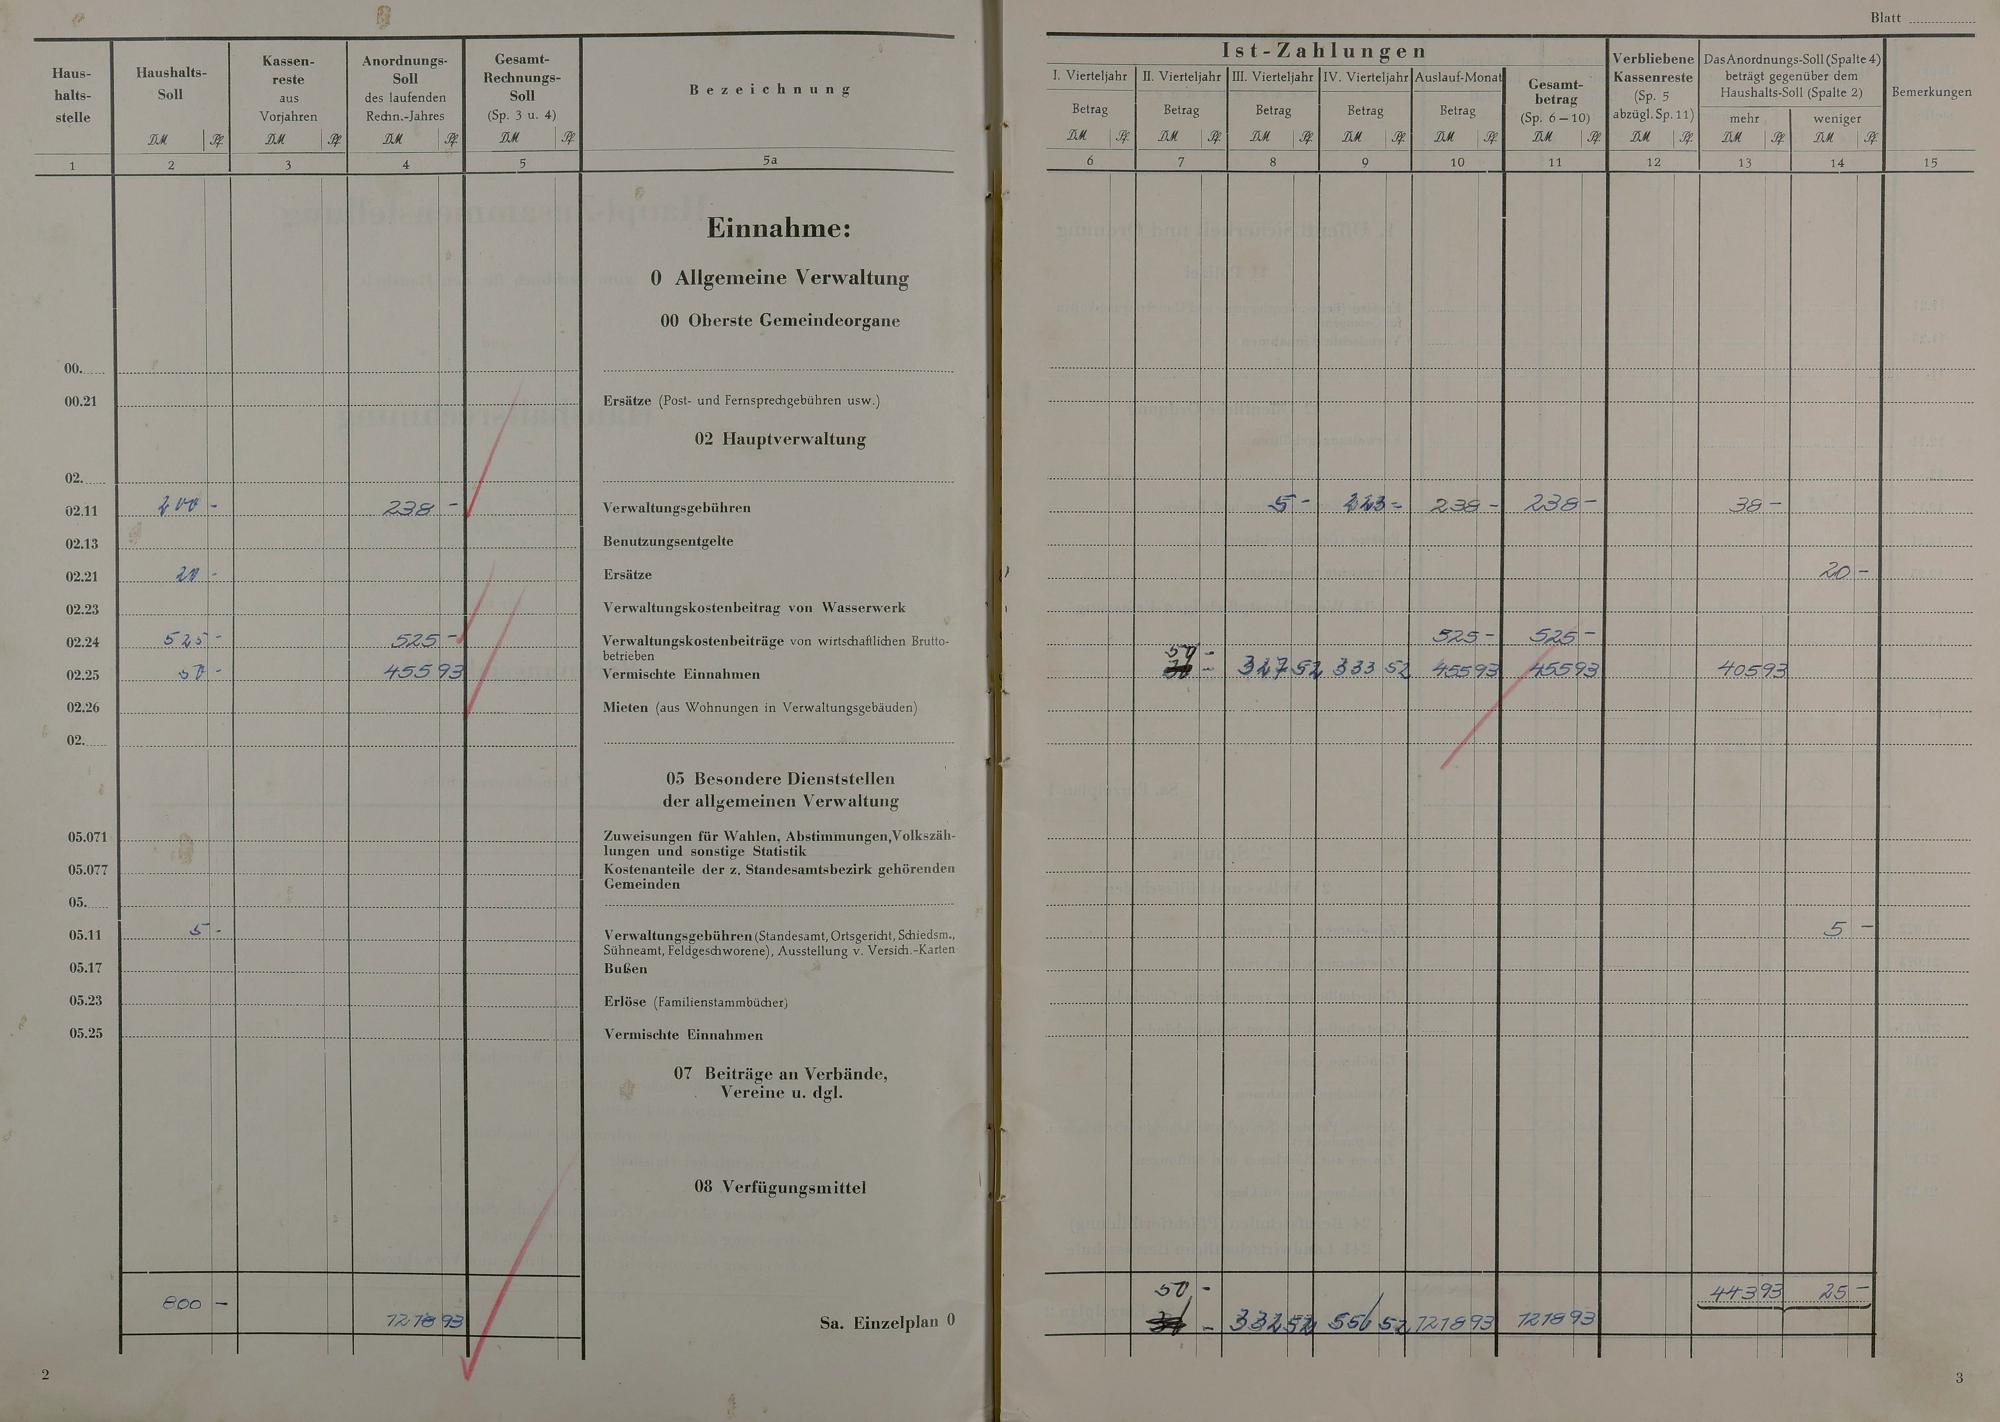 Blatt
Haus-
halts-
stelle
Haushalts-
Soll
DM Pf
Kassen-
reste
aus
Vorjahren
DM Pf
Anordnungs-
Soll
des laufenden
Rechn.-Jahres
DM Pf
Gesamt-
Rechnungs-
Soll
(Sp. 3 u. 4)
DM Pf
Bezeichnung
Ist-Zahlungen
I. Vierteljahr
Betrag
DM Pf
II. Vierteljahr
Betrag
DM Pf
III. Vierteljahr
Betrag
DM Pf
IV. Vierteljahr
Betrag
DM Pf
Auslauf-Monat
Betrag
DM Pf
Gesamt-
betrag
(Sp. 6 – 10)
DM Pf
Verbliebene
Kassenreste
(Sp. 5
abzügl. Sp. 11)
DM Pf
Das Anordnungs-Soll (Spalte 4)
beträgt gegenüber dem
Haushalts-Soll (Spalte 2)
mehr
DM Pf
weniger
DM Pf
Bemerkungen
1 2 3 4 5 5a 6 7 8 9 10 11 12 13 14 15
Einnahme:
0 Allgemeine Verwaltung
00 Oberste Gemeindeorgane
00.
00.21 Ersätze (Post- und Fernsprechgebühren usw.)
02 Hauptverwaltung
02.
02.11 200 - 238 - Verwaltungsgebühren 5 - 223 - 238 - 238 - 38 -
02.13 Benutzungsentgelte
02.21 20 - Ersätze 20 -
02.23 Verwaltungskostenbeitrag von Wasserwerk
02.24 525 - 525 - Verwaltungskostenbeiträge von wirtschaftlichen Brutto- 525 - 525 -
betrieben
50 -
02.25 50 - 455 93 Vermischte Einnahmen - 327 52 333 52 455 93 455 93 405 93
02.26 Mieten (aus Wohnungen in Verwaltungsgebäuden)
02.
05 Besondere Dienststellen
der allgemeinen Verwaltung
05.071 Zuweisungen für Wahlen, Abstimmungen, Volkszäh-
lungen und sonstige Statistik
05.077 Kostenanteile der z. Standesamtsbezirk gehörenden
Gemeinden
05.
05.11 5 - Verwaltungsgebühren (Standesamt, Ortsgericht, Schiedsm., 5 -
Sühneamt, Feldgeschworene), Ausstellung v. Versich.-Karten
05.17 Bußen
05.23 Erlöse (Familienstammbücher)
05.25 Vermischte Einnahmen
07 Beiträge an Verbände,
Vereine u. dgl.
08 Verfügungsmittel
50 - 443 93 25 -
800 - 1218 93 Sa. Einzelplan 0 - 332 52 556 52 1218 93 1218 93
2
3